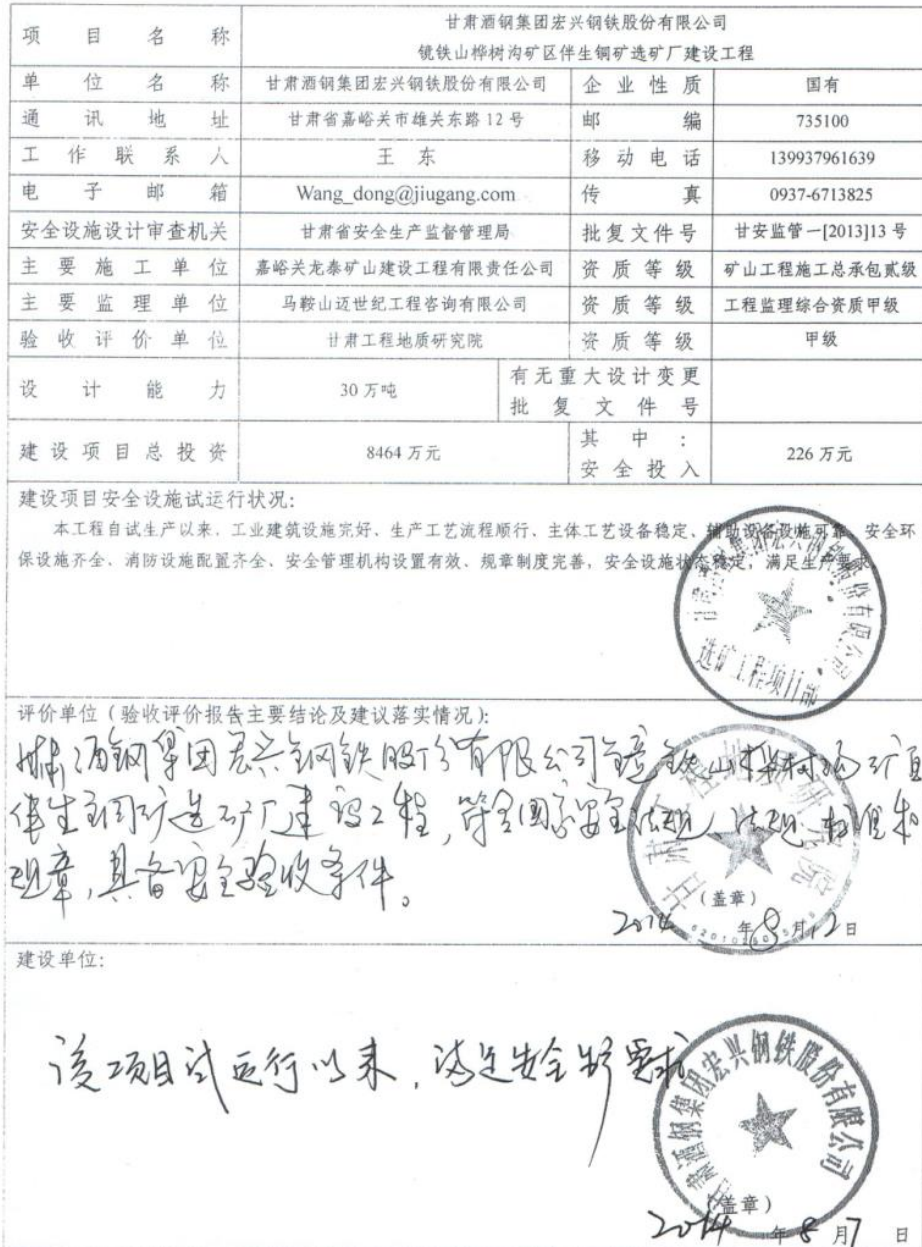 甘肃酒钢集团宏兴钢铁股份有限公司
项目名称
镜铁山桦树沟矿区伴生铜矿选矿厂建设工程
单位名称 甘肃酒钢集团宏兴钢铁股份有限公司 企业性质 国有
通讯地址 甘肃省嘉峪关市雄关东路12号 邮编 735100
工作联系人 王东 移动电话 139937961639
电子邮箱 Wang_dong@jiugang.com 传真 0937-6713825
安全设施设计审查机关 甘肃省安全生产监督管理局 批复文件号 甘安监管一[2013]13号
主要施工单位 嘉峪关龙泰矿山建设工程有限责任公司 资质等级 矿山工程施工总承包贰级
主要监理单位 马鞍山迈世纪工程咨询有限公司 资质等级 工程监理综合资质甲级
验收评价单位 甘肃工程地质研究院 资质等级 甲级
设计能力 30万吨 有无重大设计变更
批复文件号
建设项目总投资 8464万元 其中:
安全投入 226万元
建设项目安全设施试运行状况:
本工程自试生产以来、工业建筑设施完好、生产工艺流程顺行、主体工艺设备稳定、辅助设备设施可靠、安全环
保设施齐全、消防设施配置齐全、安全管理机构设置有效、规章制度完善,安全设施状态稳定,满足生产要求。
甘肃酒钢集团宏兴钢铁股份有限公司
选矿工程项目部
评价单位(验收评价报告主要结论及建议落实情况):
甘肃酒钢集团宏兴钢铁股份有限公司镜铁山桦树沟矿区
伴生铜矿选矿厂建设工程,符合国家安全法规、法规、标准和
规章,具备安全验收条件。
甘肃工程地质研究院
(盖章)
2014年8月12日
建设单位:
该项目试运行以来,满足安全生产要求
甘肃酒钢集团宏兴钢铁股份有限公司
(盖章)
2014年8月7日